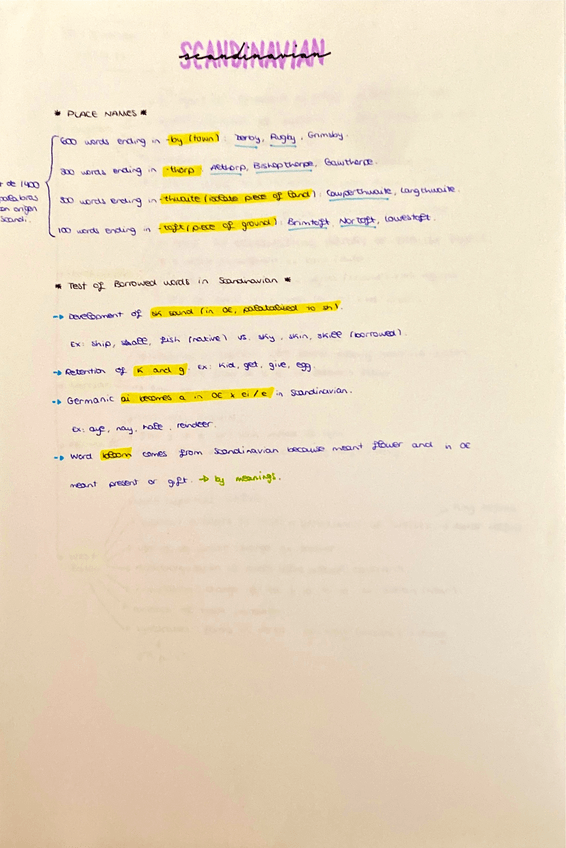 SCANDINAVIAN
scandinavian
* PLACE NAMES *
600 words ending in -by (town): Derby, Rugby, Grimsby.
300 words ending in -thorp: Althorp, Bishopthorpe, Gawthorpe.
300 words ending in -thwaite (isolate piece of land): Cowperthwaite, Langthwaite.
100 words ending in -toft (piece of ground): Brimtoft, Nortoft, Lowestoft.
de 1400
palabras
en origen
Scandi.
* Test of Borrowed words in Scandinavian *
→ Development of sk sound (in OE, palatalised to sh).
Ex: ship, shall, fish (native) vs. sky, skin, skill (borrowed).
→ Retention of k and g. Ex: Kid, get, give, egg.
→ Germanic ai becomes a in OE x ei/e in Scandinavian.
Ex: aye, nay, hale, reindeer.
→ Word bloom comes from Scandinavian because meant flower and in OE
meant present or gift. → by meanings.